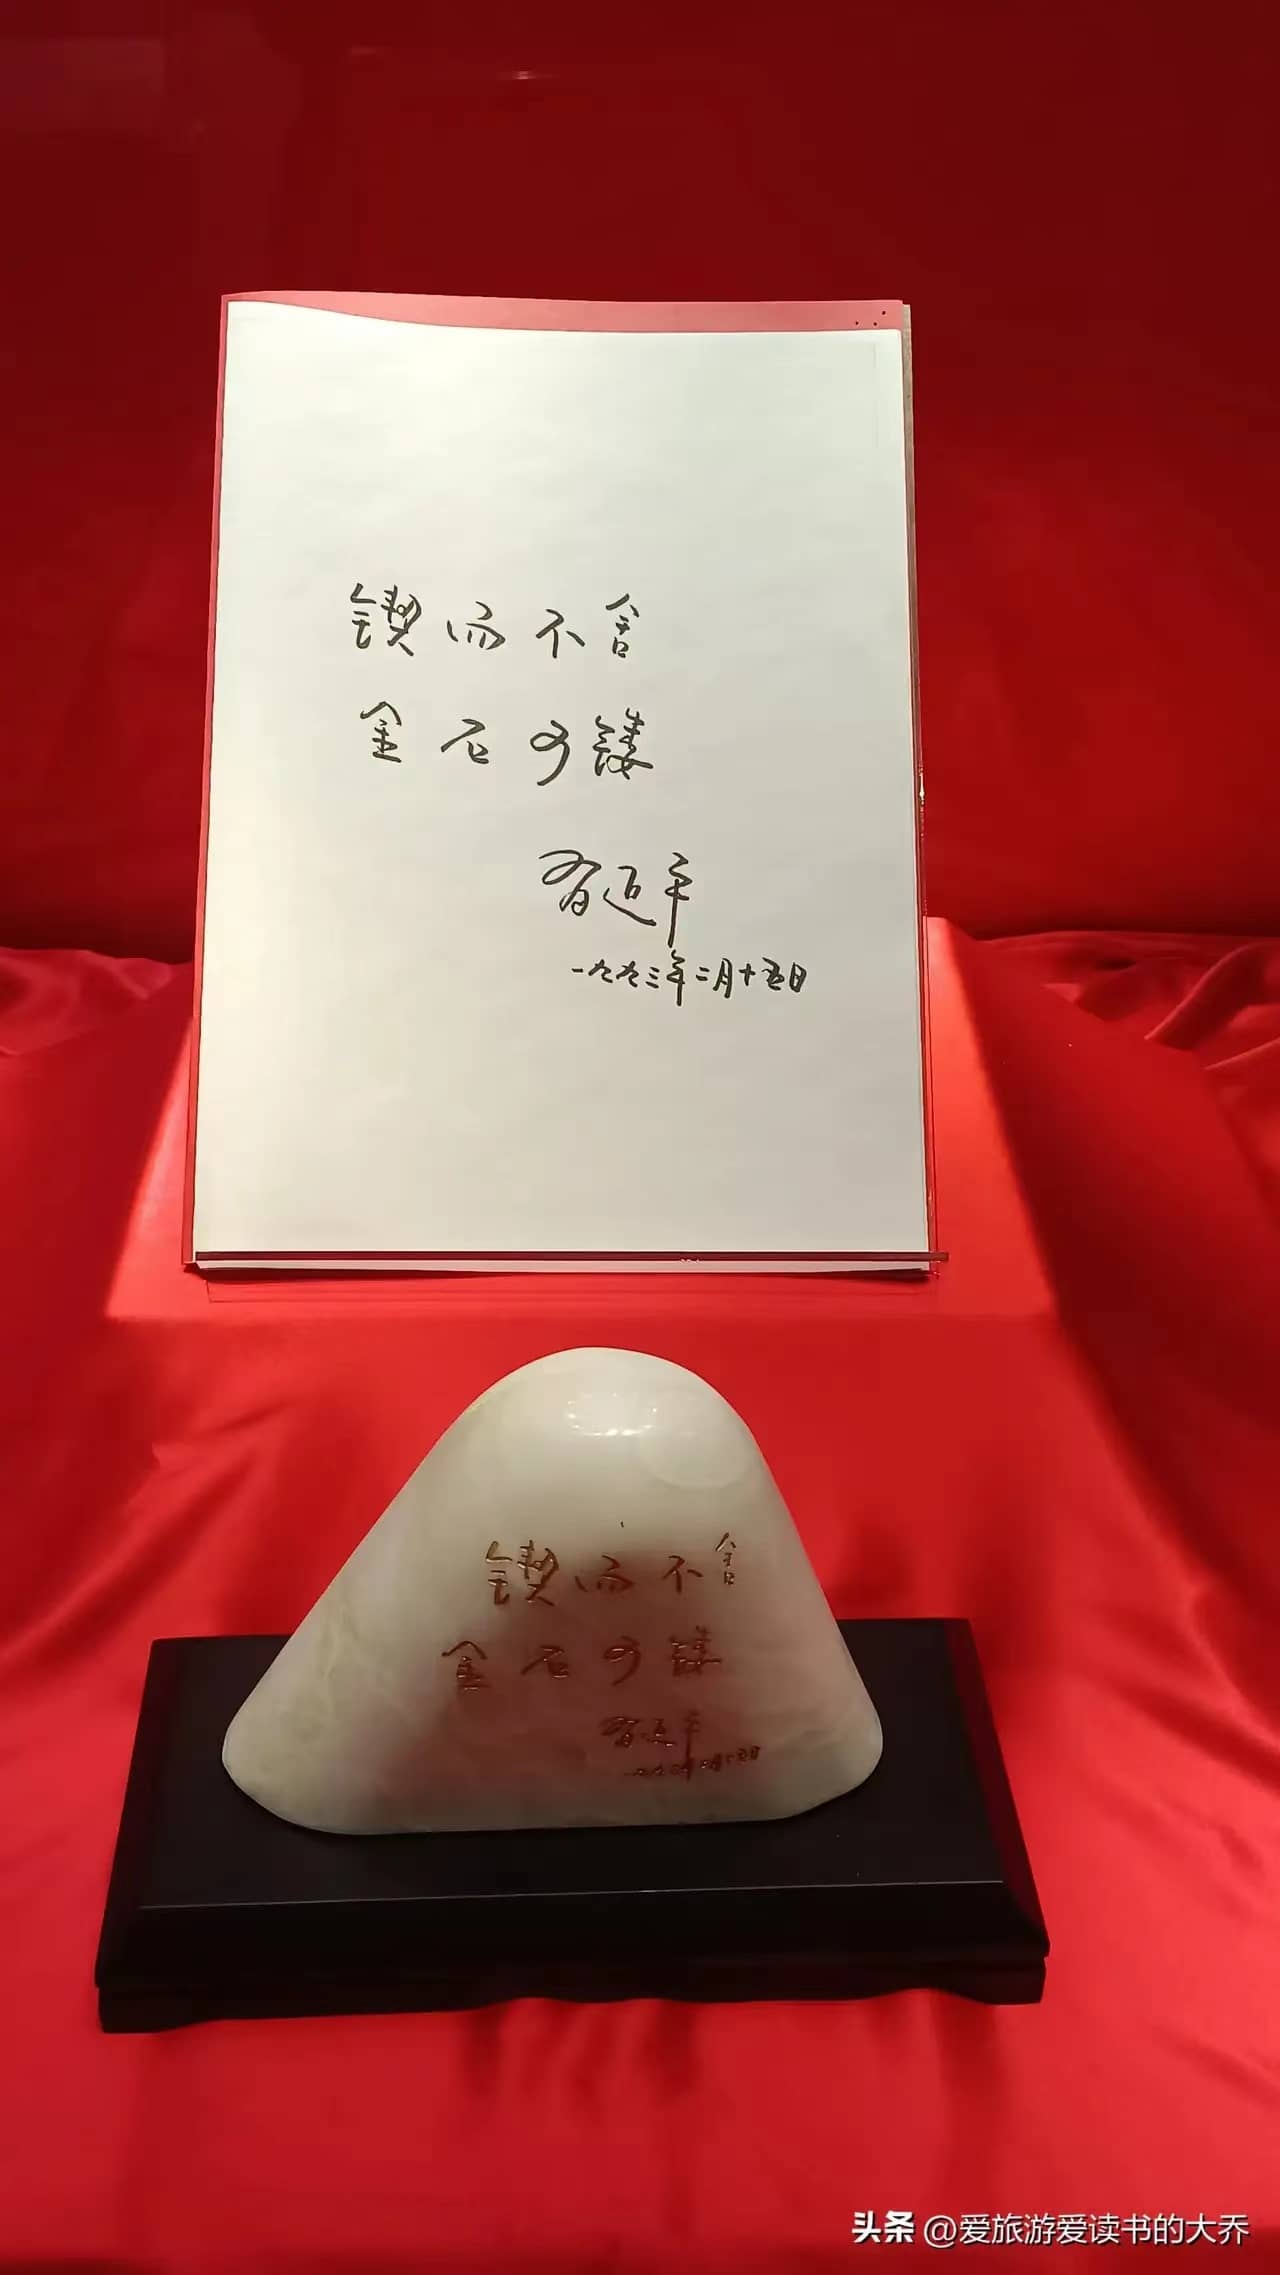 锲而不舍
金石可镂
习近平
一九九三年二月十五日
锲而不舍
金石可镂
习近平
一九九三年二月十五日
头条 @爱旅游爱读书的大乔